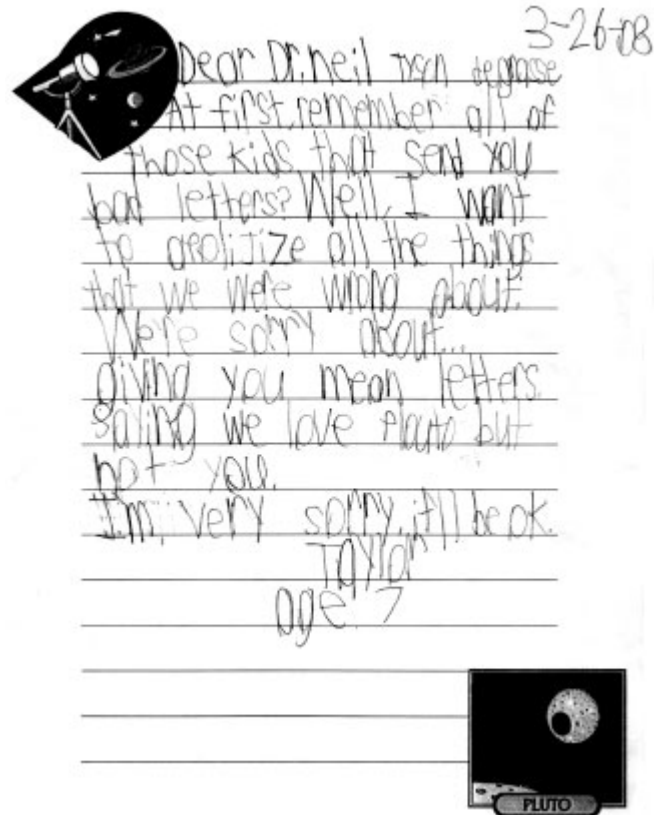 3-26-08
Dear Dr. neil tysn degrasse
At first, remember all of
those kids that send you
bad letters? Well, I want
to apolijize all the things
that we were wrong about.
We're sorry about...
giving you mean letters.
Saying we love Pluto but
not you.
I'm very sorry, it'll be ok.
Taylor
age 7
PLUTO